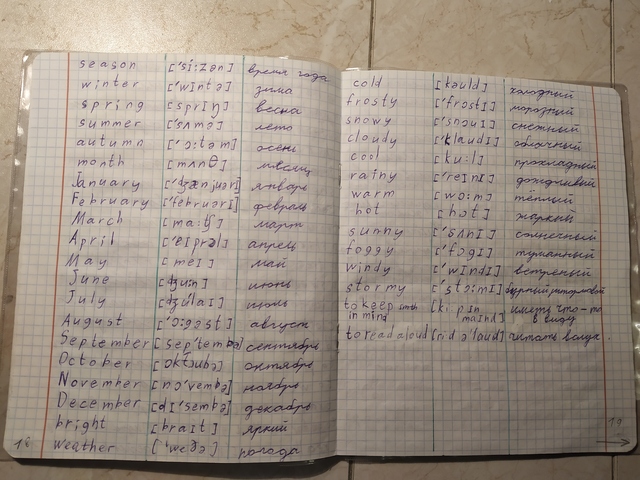 season ['si:zən] время года
winter ['wIntə] зима
spring [sprIŋ] весна
summer ['sʌmə] лето
autumn ['ɔ:təm] осень
month [mʌnθ] месяц
January ['ʤænjuərI] январь
February ['februərI] февраль
March [ma:ʧ] март
April ['eIprəl] апрель
May [meI] май
June [ʤu:n] июнь
July [ʤu'laI] июль
August ['ɔ:gəst] август
September [sep'tembə] сентябрь
October [ok'təubə] октябрь
November [nə'vembə] ноябрь
December [dI'sembə] декабрь
bright [braIt] яркий
weather ['weðə] погода
18
cold [kəuld] холодный
frosty ['frostI] морозный
snowy ['snəuI] снежный
cloudy ['klaudI] облачный
cool [ku:l] прохладный
rainy ['reInI] дождливый
warm [wo:m] тёплый
hot [hot] жаркий
sunny ['sʌnI] солнечный
foggy ['fɔgI] туманный
windy ['wIndI] ветреный
stormy ['stɔ:mI] бурный, штормовой
to keep smth [ki:p In иметь что-то
in mind maInd] в виду
to read aloud [ri:d ə'laud] читать вслух.
19